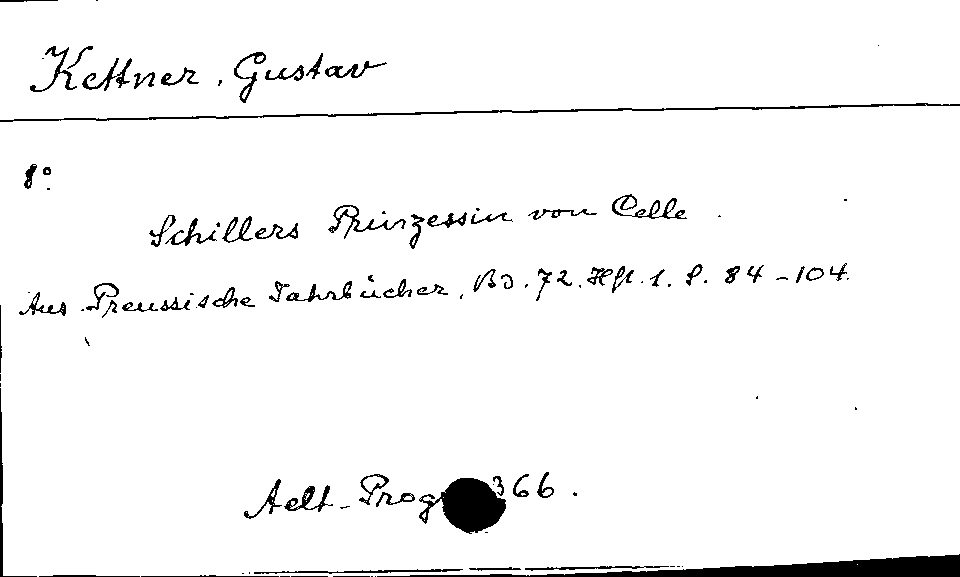 Kettner, Gustav
8°.
Schillers Prinzessin von Celle.
Aus Preussische Jahrbücher, Bd. 72. Hft. 1. S. 84-104.
Aelt-Prog 366.